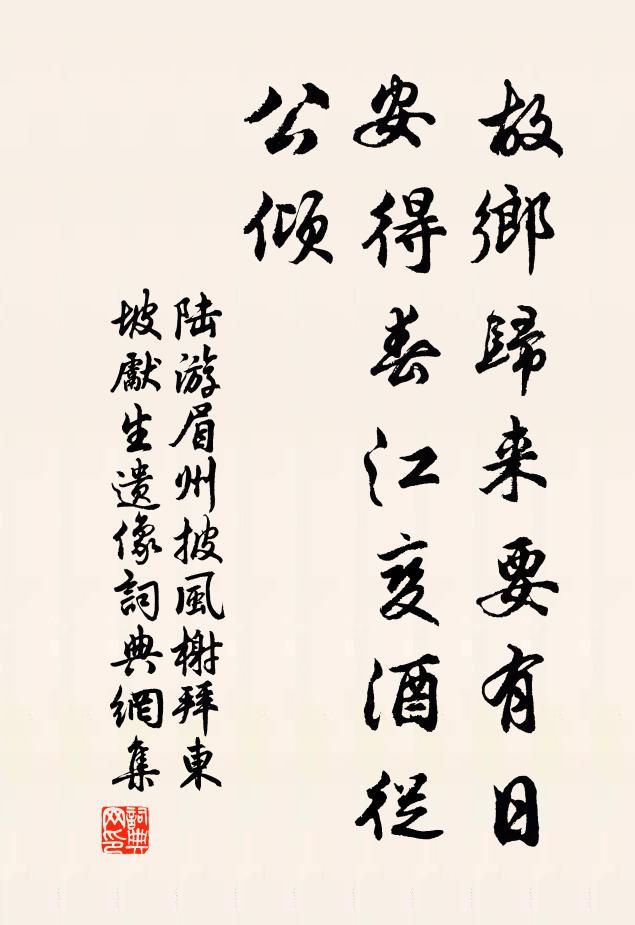 故鄉歸来要有日
安得春江变酒從
公傾
陆游眉州披風榭拜東
坡獻生遺像詞典網集
詞典网印